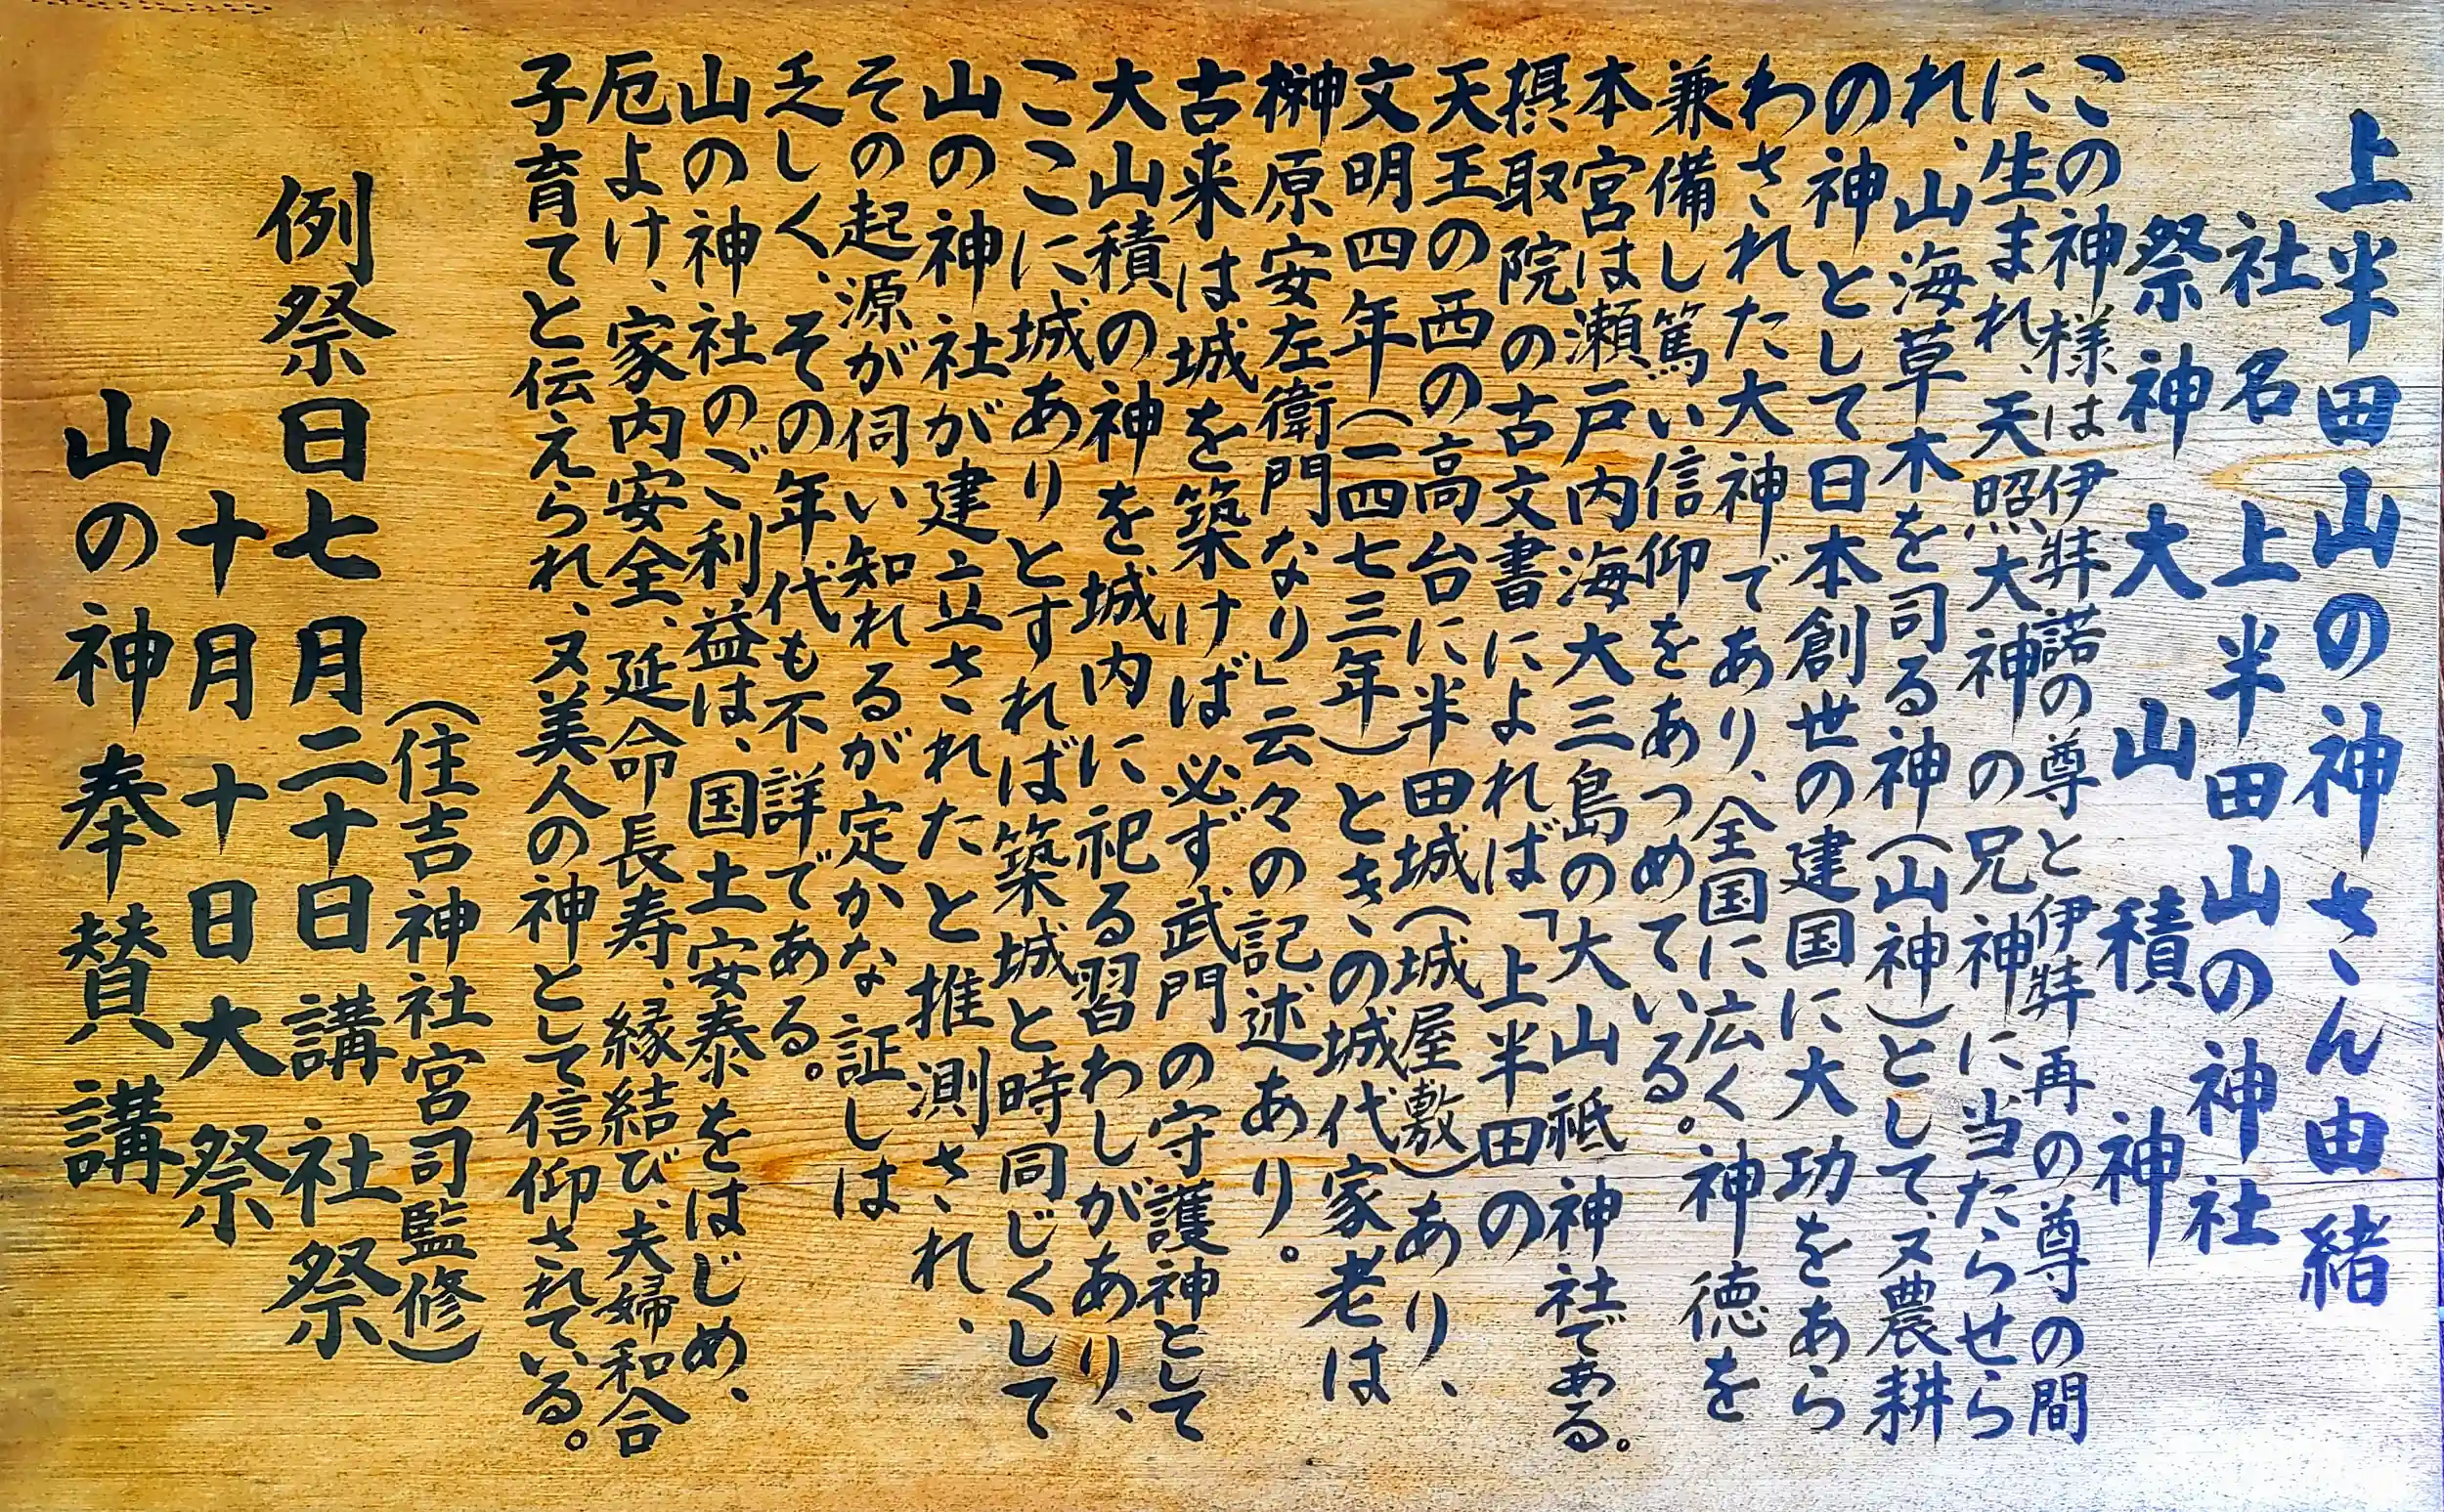 上半田山の神さん由緒
社名　上半田山の神社
祭神　大山積神
この神様は伊弉諾の尊と伊弉再の尊の間
に生まれ、天照大神の兄神に当たらせら
れ、山海草木を司る神（山神）として、又農耕
の神として日本創世の建国に大功をあら
わされた大神であり、全国に広く神徳を
兼備し篤い信仰をあつめている。
本宮は瀬戸内海大三島の大山祇神社である。
摂取院の古文書によれば「上半田の
天王の西の高台に半田城（城屋敷）あり、
文明四年（一四七三年）ときの城代家老は
榊原安左衛門なり」云々の記述あり。
古来は城を築けば必ず武門の守護神として
大山積の神を城内に祀る習わしがあり、
ここに城ありとすれば築城と時同じくして
山の神社が建立されたと推測され、
その起源が伺い知れるが定かな証しは
乏しく、その年代も不詳である。
山の神社のご利益は、国土安泰をはじめ、
厄よけ、家内安全、延命長寿、縁結び、夫婦和合
子育てと伝えられ、又美人の神として信仰されている。
（住吉神社宮司監修）
例祭日七月二十日講社祭
十月十日大祭
山の神奉賛講